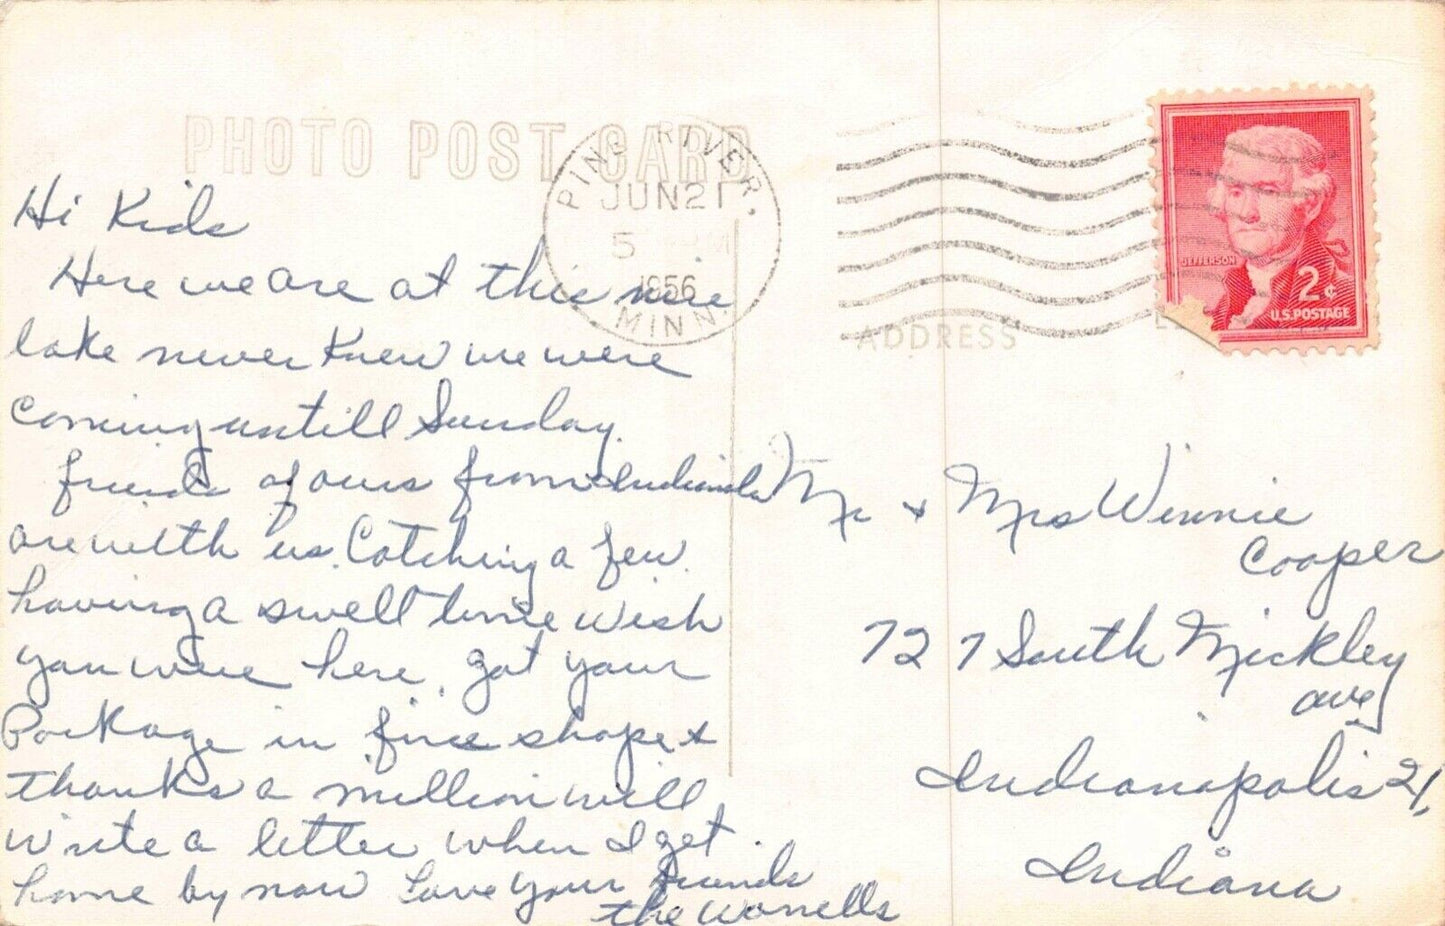 PHOTO POST CARD
PINE RIVER,
JUN 21
5 PM
1956
MINN.
JEFFERSON
2¢
U.S. POSTAGE
ADDRESS
Hi Kids
Here we are at this nice
lake never Knew we were
coming untill Sunday.
friends of ours from Indiana
are with us. Catching a few.
having a swell time wish
you were here. got your
Package in fine shape &
thanks a million will
write a letter when I get
home by now Love your friends
the
Mr & Mrs Winnie
Cooper
727 South Mickley
ave
Indianapolis 21,
Indiana